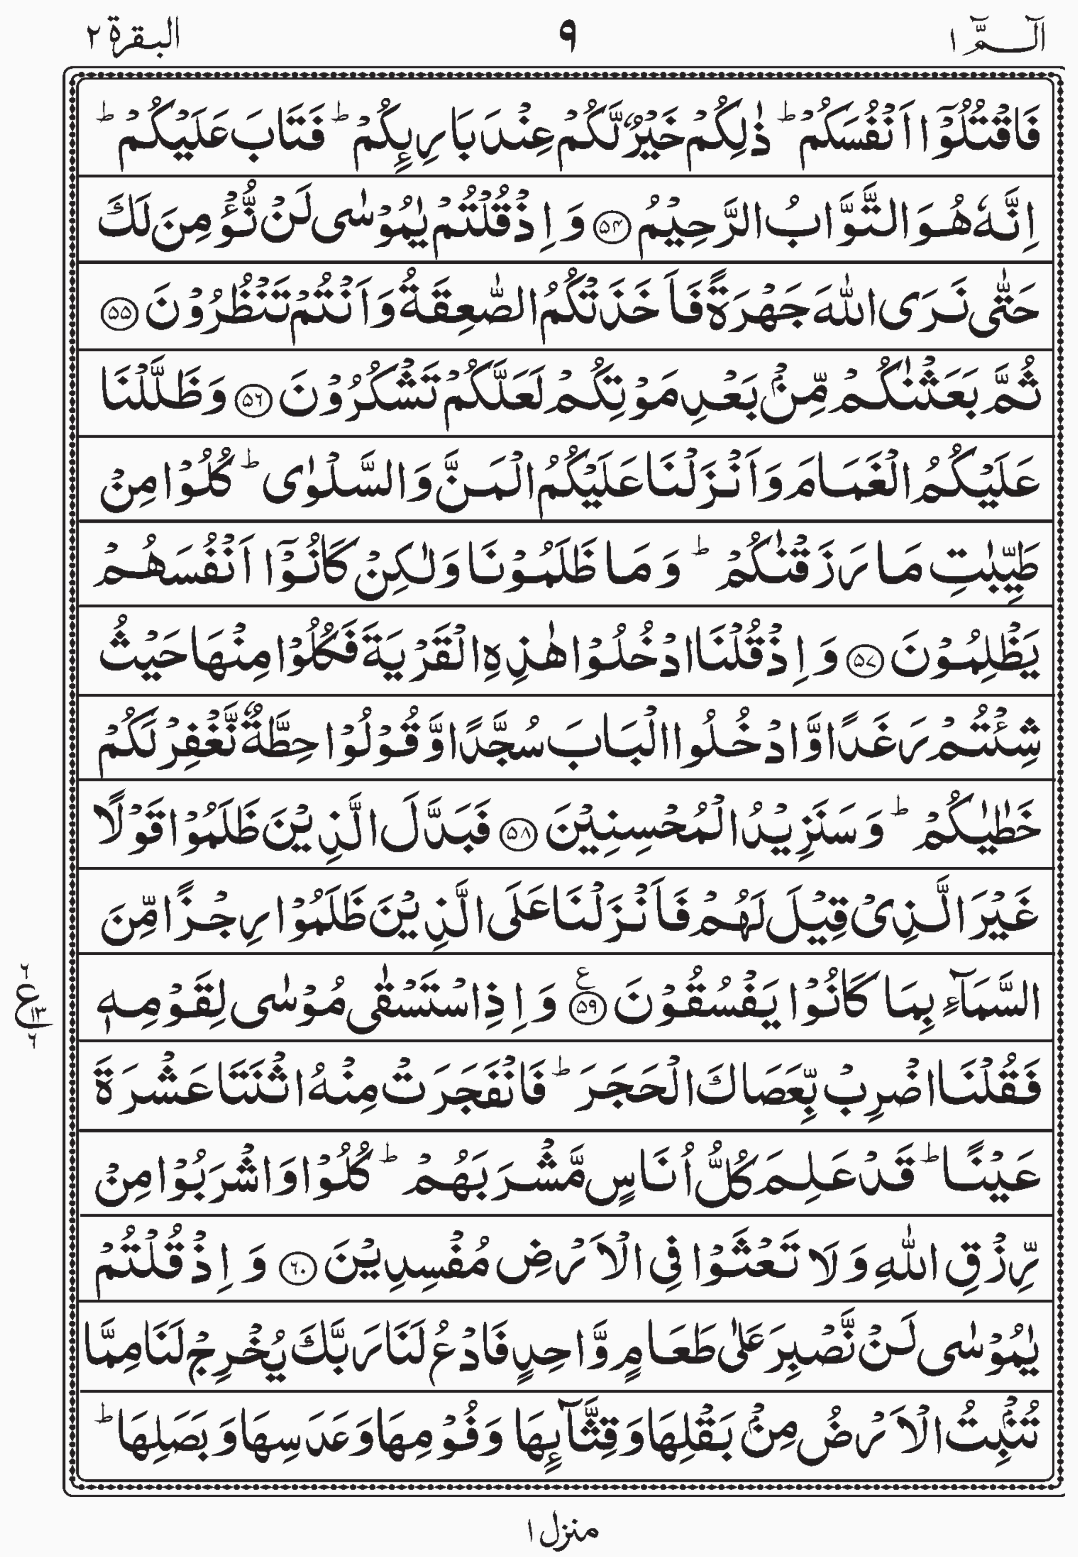 الٓـمّٓ ١ ٩ البقرة ٢
فَاقْتُلُوْۤا اَنْفُسَكُمْ ؕ ذٰلِكُمْ خَيْرٌ لَّكُمْ عِنْدَ بَارِىِٕكُمْ ؕ فَتَابَ عَلَيْكُمْ ؕ
اِنَّهٗ هُوَ التَّوَّابُ الرَّحِيْمُ ۝۵۴ وَ اِذْ قُلْتُمْ يٰمُوْسٰى لَنْ نُّؤْمِنَ لَكَ
حَتّٰى نَرَى اللّٰهَ جَهْرَةً فَاَخَذَتْكُمُ الصّٰعِقَةُ وَ اَنْتُمْ تَنْظُرُوْنَ ۝۵۵
ثُمَّ بَعَثْنٰكُمْ مِّنْۢ بَعْدِ مَوْتِكُمْ لَعَلَّكُمْ تَشْكُرُوْنَ ۝۵۶ وَ ظَلَّلْنَا
عَلَيْكُمُ الْغَمَامَ وَ اَنْزَلْنَا عَلَيْكُمُ الْمَنَّ وَ السَّلْوٰى ؕ كُلُوْا مِنْ
طَيِّبٰتِ مَا رَزَقْنٰكُمْ ؕ وَ مَا ظَلَمُوْنَا وَ لٰكِنْ كَانُوْۤا اَنْفُسَهُمْ
يَظْلِمُوْنَ ۝۵۷ وَ اِذْ قُلْنَا ادْخُلُوْا هٰذِهِ الْقَرْيَةَ فَكُلُوْا مِنْهَا حَيْثُ
شِئْتُمْ رَغَدًا وَّ ادْخُلُوا الْبَابَ سُجَّدًا وَّ قُوْلُوْا حِطَّةٌ نَّغْفِرْ لَكُمْ
خَطٰيٰكُمْ ؕ وَ سَنَزِيْدُ الْمُحْسِنِيْنَ ۝۵۸ فَبَدَّلَ الَّذِيْنَ ظَلَمُوْا قَوْلًا
غَيْرَ الَّذِىْ قِيْلَ لَهُمْ فَاَنْزَلْنَا عَلَى الَّذِيْنَ ظَلَمُوْا رِجْزًا مِّنَ
السَّمَآءِ بِمَا كَانُوْا يَفْسُقُوْنَ ۝۵۹ ع وَ اِذِ اسْتَسْقٰى مُوْسٰى لِقَوْمِهٖ
٦ ع ١٣ ٦
فَقُلْنَا اضْرِبْ بِّعَصَاكَ الْحَجَرَ ؕ فَانْفَجَرَتْ مِنْهُ اثْنَتَا عَشْرَةَ
عَيْنًا ؕ قَدْ عَلِمَ كُلُّ اُنَاسٍ مَّشْرَبَهُمْ ؕ كُلُوْا وَ اشْرَبُوْا مِنْ
رِّزْقِ اللّٰهِ وَ لَا تَعْثَوْا فِى الْاَرْضِ مُفْسِدِيْنَ ۝۶۰ وَ اِذْ قُلْتُمْ
يٰمُوْسٰى لَنْ نَّصْبِرَ عَلٰى طَعَامٍ وَّاحِدٍ فَادْعُ لَنَا رَبَّكَ يُخْرِجْ لَنَا مِمَّا
تُنْۢبِتُ الْاَرْضُ مِنْۢ بَقْلِهَا وَ قِثَّآىِٕهَا وَ فُوْمِهَا وَ عَدَسِهَا وَ بَصَلِهَا ؕ
منزل ١